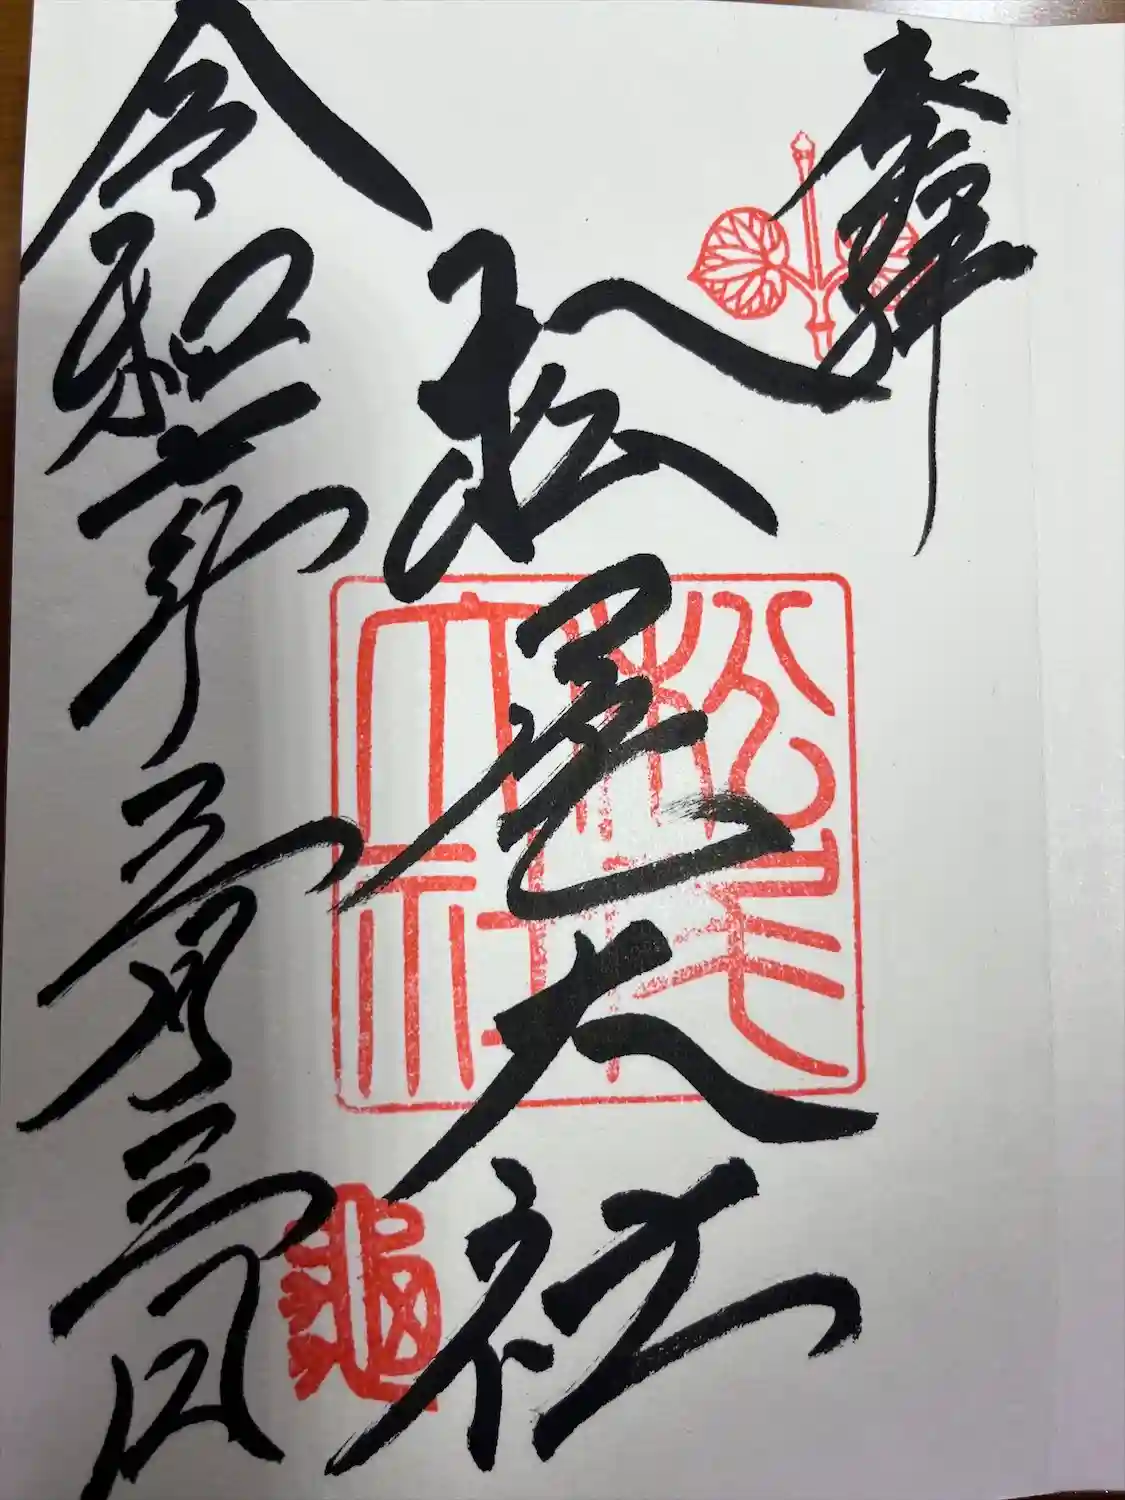 奉拝
松尾大社
松尾大社
令和二年三月三日
龜